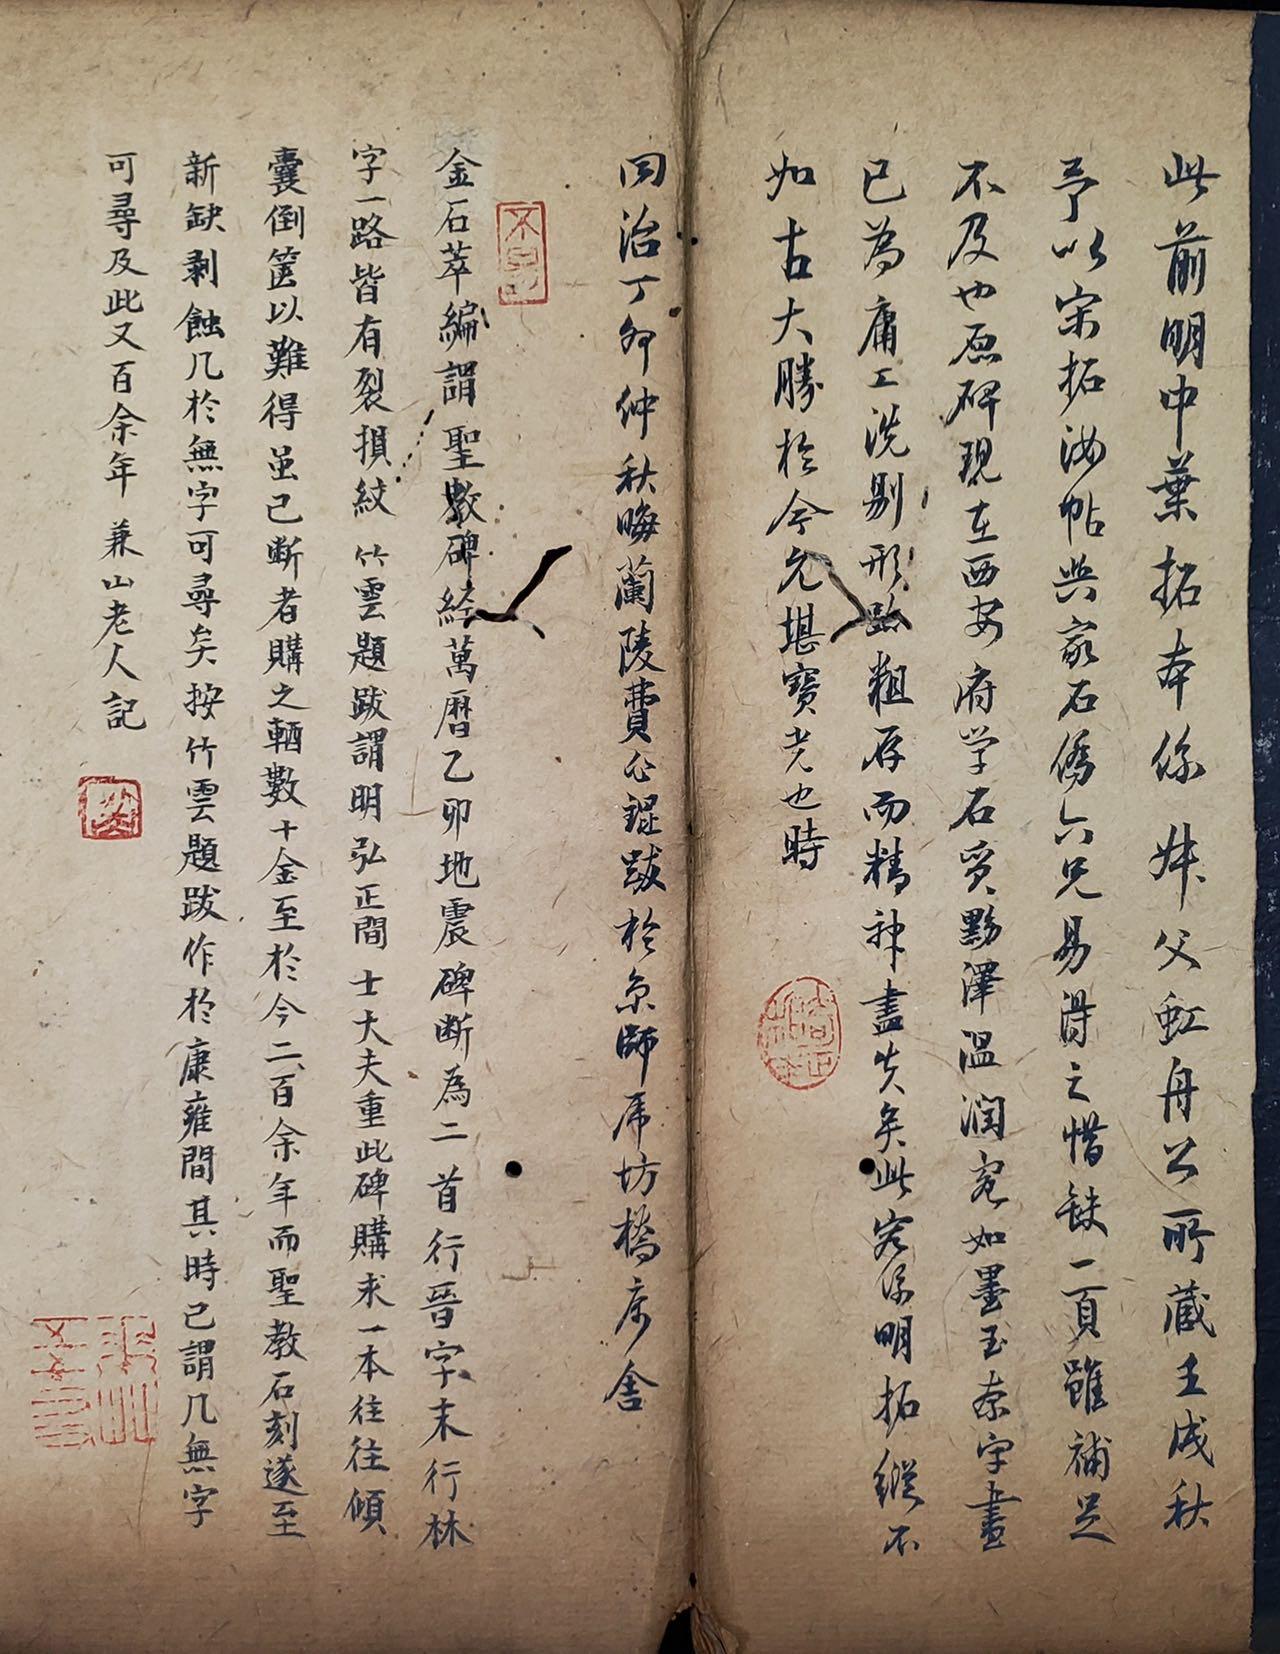 此前明中葉拓本係妹父虹舟公所藏壬戌秋
予以宋拓汝帖與家石僑六兄易得之惜缺一頁雖補足
不及也原碑現在西安府学石質黝澤溫潤宛如墨玉奈字畫
已為庸工洗剔形跡粗存而精神盡失矣此宕係明拓縱不
如古大勝於今尤堪寶光也時
同治丁卯仲秋晦蘭陵費公錕跋於京師虎坊橋京舍
金石萃編謂聖教碑經萬曆乙卯地震碑断為二首行晉字末行林
字一路皆有裂損紋竹雲題跋謂明弘正間士大夫重此碑購求一本往往傾
囊倒篋以難得虽已断者購之輒數十金至於今二百余年而聖教石刻遂至
新缺剥蝕几於無字可尋矣按竹雲題跋作於康雍間其時已謂几無字
可尋及此又百余年 兼山老人記